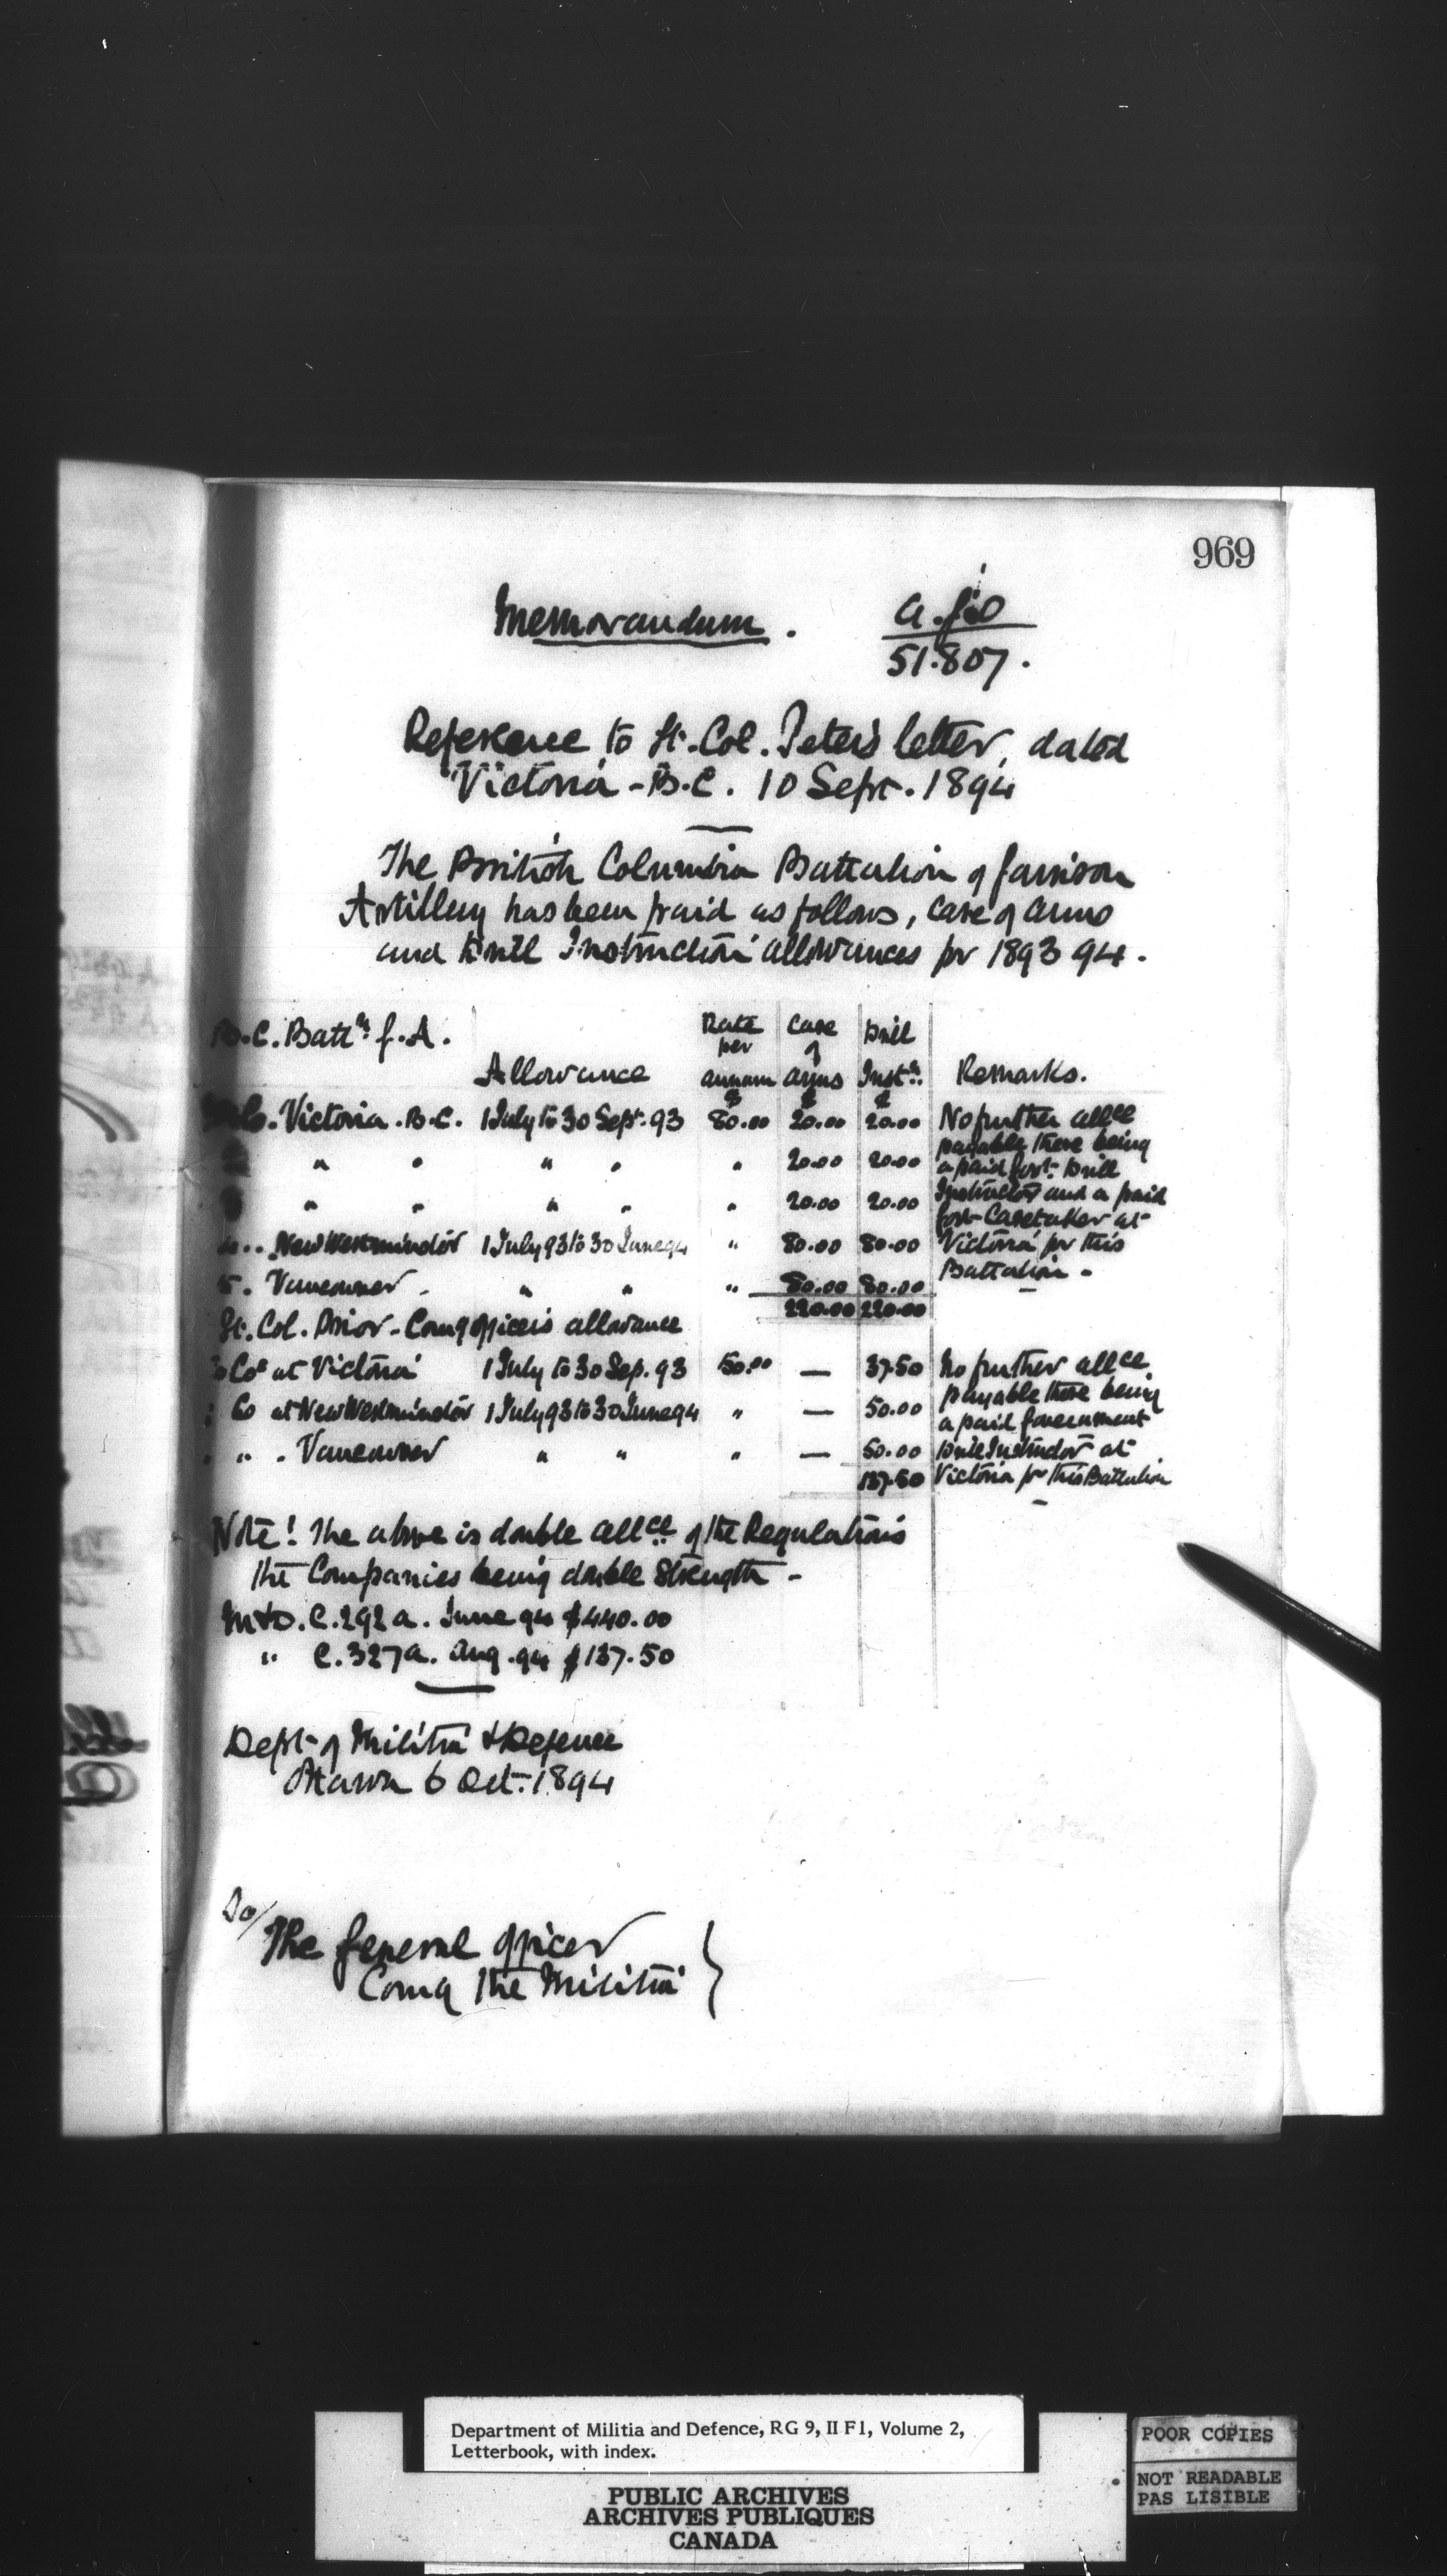 969
Memorandum.
51.807.
Reference to Lt. Col. Peters letter, dated
Victoria - B.C. 10 Sept. 1894
The British Columbia Battalion of Garrison
Artillery has been paid as follows, Care of Arms
and Drill Instruction allowances for 1893 94.
B.C. Battn. G.A. Allowance Rate per annum Care of Arms Drill Instn. Remarks.
$ $ $
Co. Victoria. B.C. 1 July to 30 Sept. 93 80.00 20.00 20.00 No further allce
" " " " " 20.00 20.00 payable there being
a paid Govt. Drill
" " " " " 20.00 20.00 Instructor and a paid
Govt Caretaker at
" New Westminster 1 July 93 to 30 June 94 " 80.00 80.00 Victoria for this
5. Vancouver " " " 80.00 80.00 Battalion -
220.00 220.00
Lt. Col. Prior - Comg officers allowance
3 Cos at Victoria 1 July to 30 Sep. 93 50.00 — 37.50 No further allce
Co at New Westminster 1 July 93 to 30 June 94 " — 50.00 payable there being
a paid Government
" . Vancouver " " " — 50.00 Drill Instructor at
137.50 Victoria for this Battalion
Note! The above is double allce of the Regulations
the Companies being double Strength -
M & D. C. 292 a. June 94 $440.00
" C. 327 a. Aug. 94 $137.50
Dept of Militia & Defence
Ottawa 6 Oct. 1894
To/
The General Officer
Comg the Militia }
Department of Militia and Defence, RG 9, II F1, Volume 2,
Letterbook, with index.
PUBLIC ARCHIVES
ARCHIVES PUBLIQUES
CANADA
POOR COPIES
NOT READABLE
PAS LISIBLE